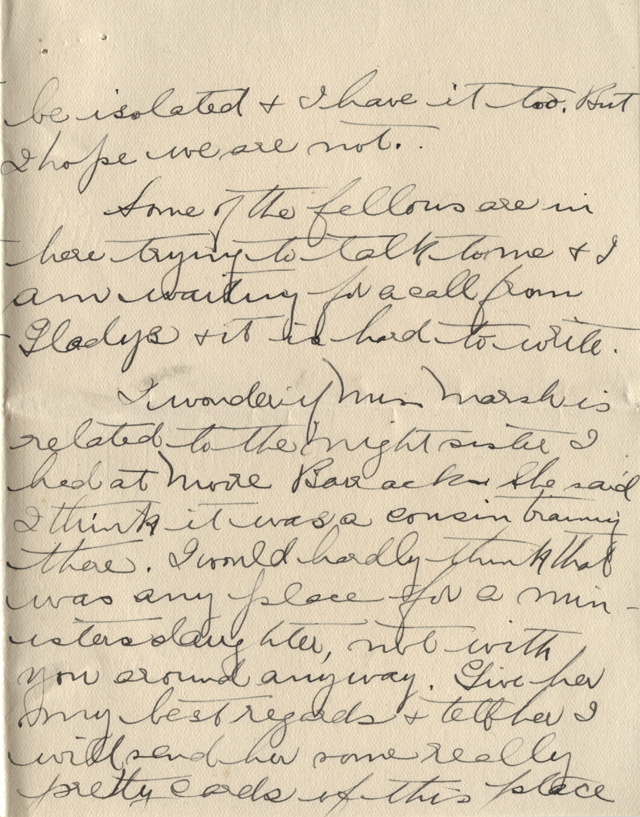 be isolated & I have it too. But
I hope we are not.
Some of the fellows are in
here trying to talk to me & I
am waiting for a call from
Gladys & it is hard to write.
I wonder if Miss Marsh is
related to the night sister I
had at Moore Barracks She said
I think it was a cousin training
there. I would hardly think that
was any place for a min-
isters daughter, not with
you around anyway. Give her
my best regards & tell her I
will send her some really
pretty cards of this place